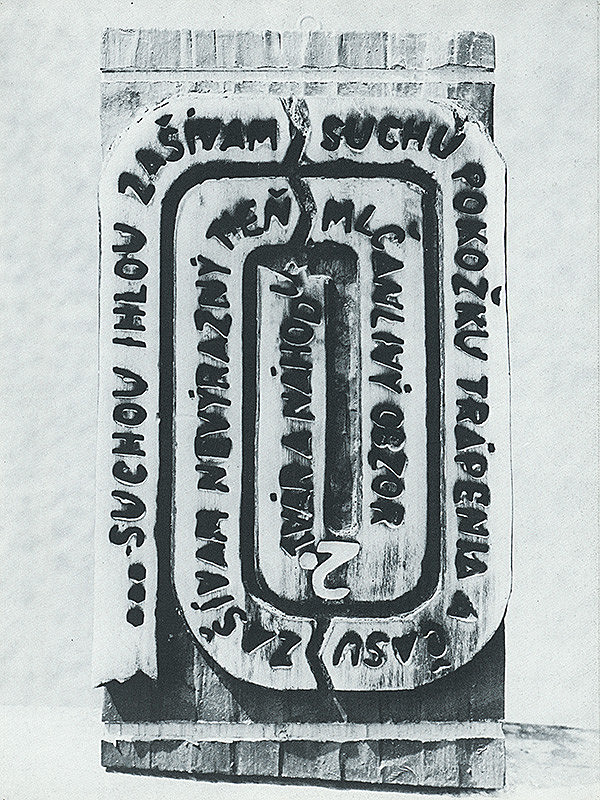 ...SUCHOU IHLOU
ZAŠÍVAM SUCHÚ
POKOŽKU TRÁPENIA A
ČASU
ZAŠÍVAM NEVÝRAZNÝ
TIEŇ
MLČANLIVÝ OBZOR
TVÁR A NÁHODU